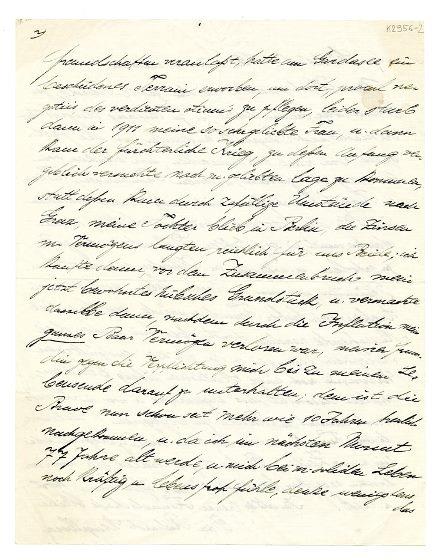 K2956-2
3
freundschaften veranlaßt, hatte am Gardasee ein
bescheidenes Terrain erworben, um dort, procul ne-
gotiis das verdienten otiums zu pflegen, leider starb
dann in 1911 meine so sehr geliebte Frau, u. dann
kam der fürchterliche Krieg, zu dessen Anfang
vermochte nach m. geliebten Lago zu kommen,
statt dessen kam durch zufällige Umstände nach
Graz, meine Tochter blieb in Berlin, die Zinsen
m. Vermögens langten reichlich für uns Beide; ich
kaufte dann, vor dem Zusammenbruch mein
jetzt bewohntes hübsches Grundstück, u. vermachte
dasselbe dann, nachdem durch die Inflation mein
ganzes Baar Vermögen verloren war, meiner
gegen die Verpflichtung mich bis zu meinem Le-
bensende darauf zu unterhalten; dem ist die
Brave nun schon seit mehr wie 10 Jahren
nachgekommen, u. da ich im nächsten Monat
77 Jahre alt werde u. mich bei m. soliden Leben
noch kräftig u. lebensfroh fühle, denke wenigstens
das